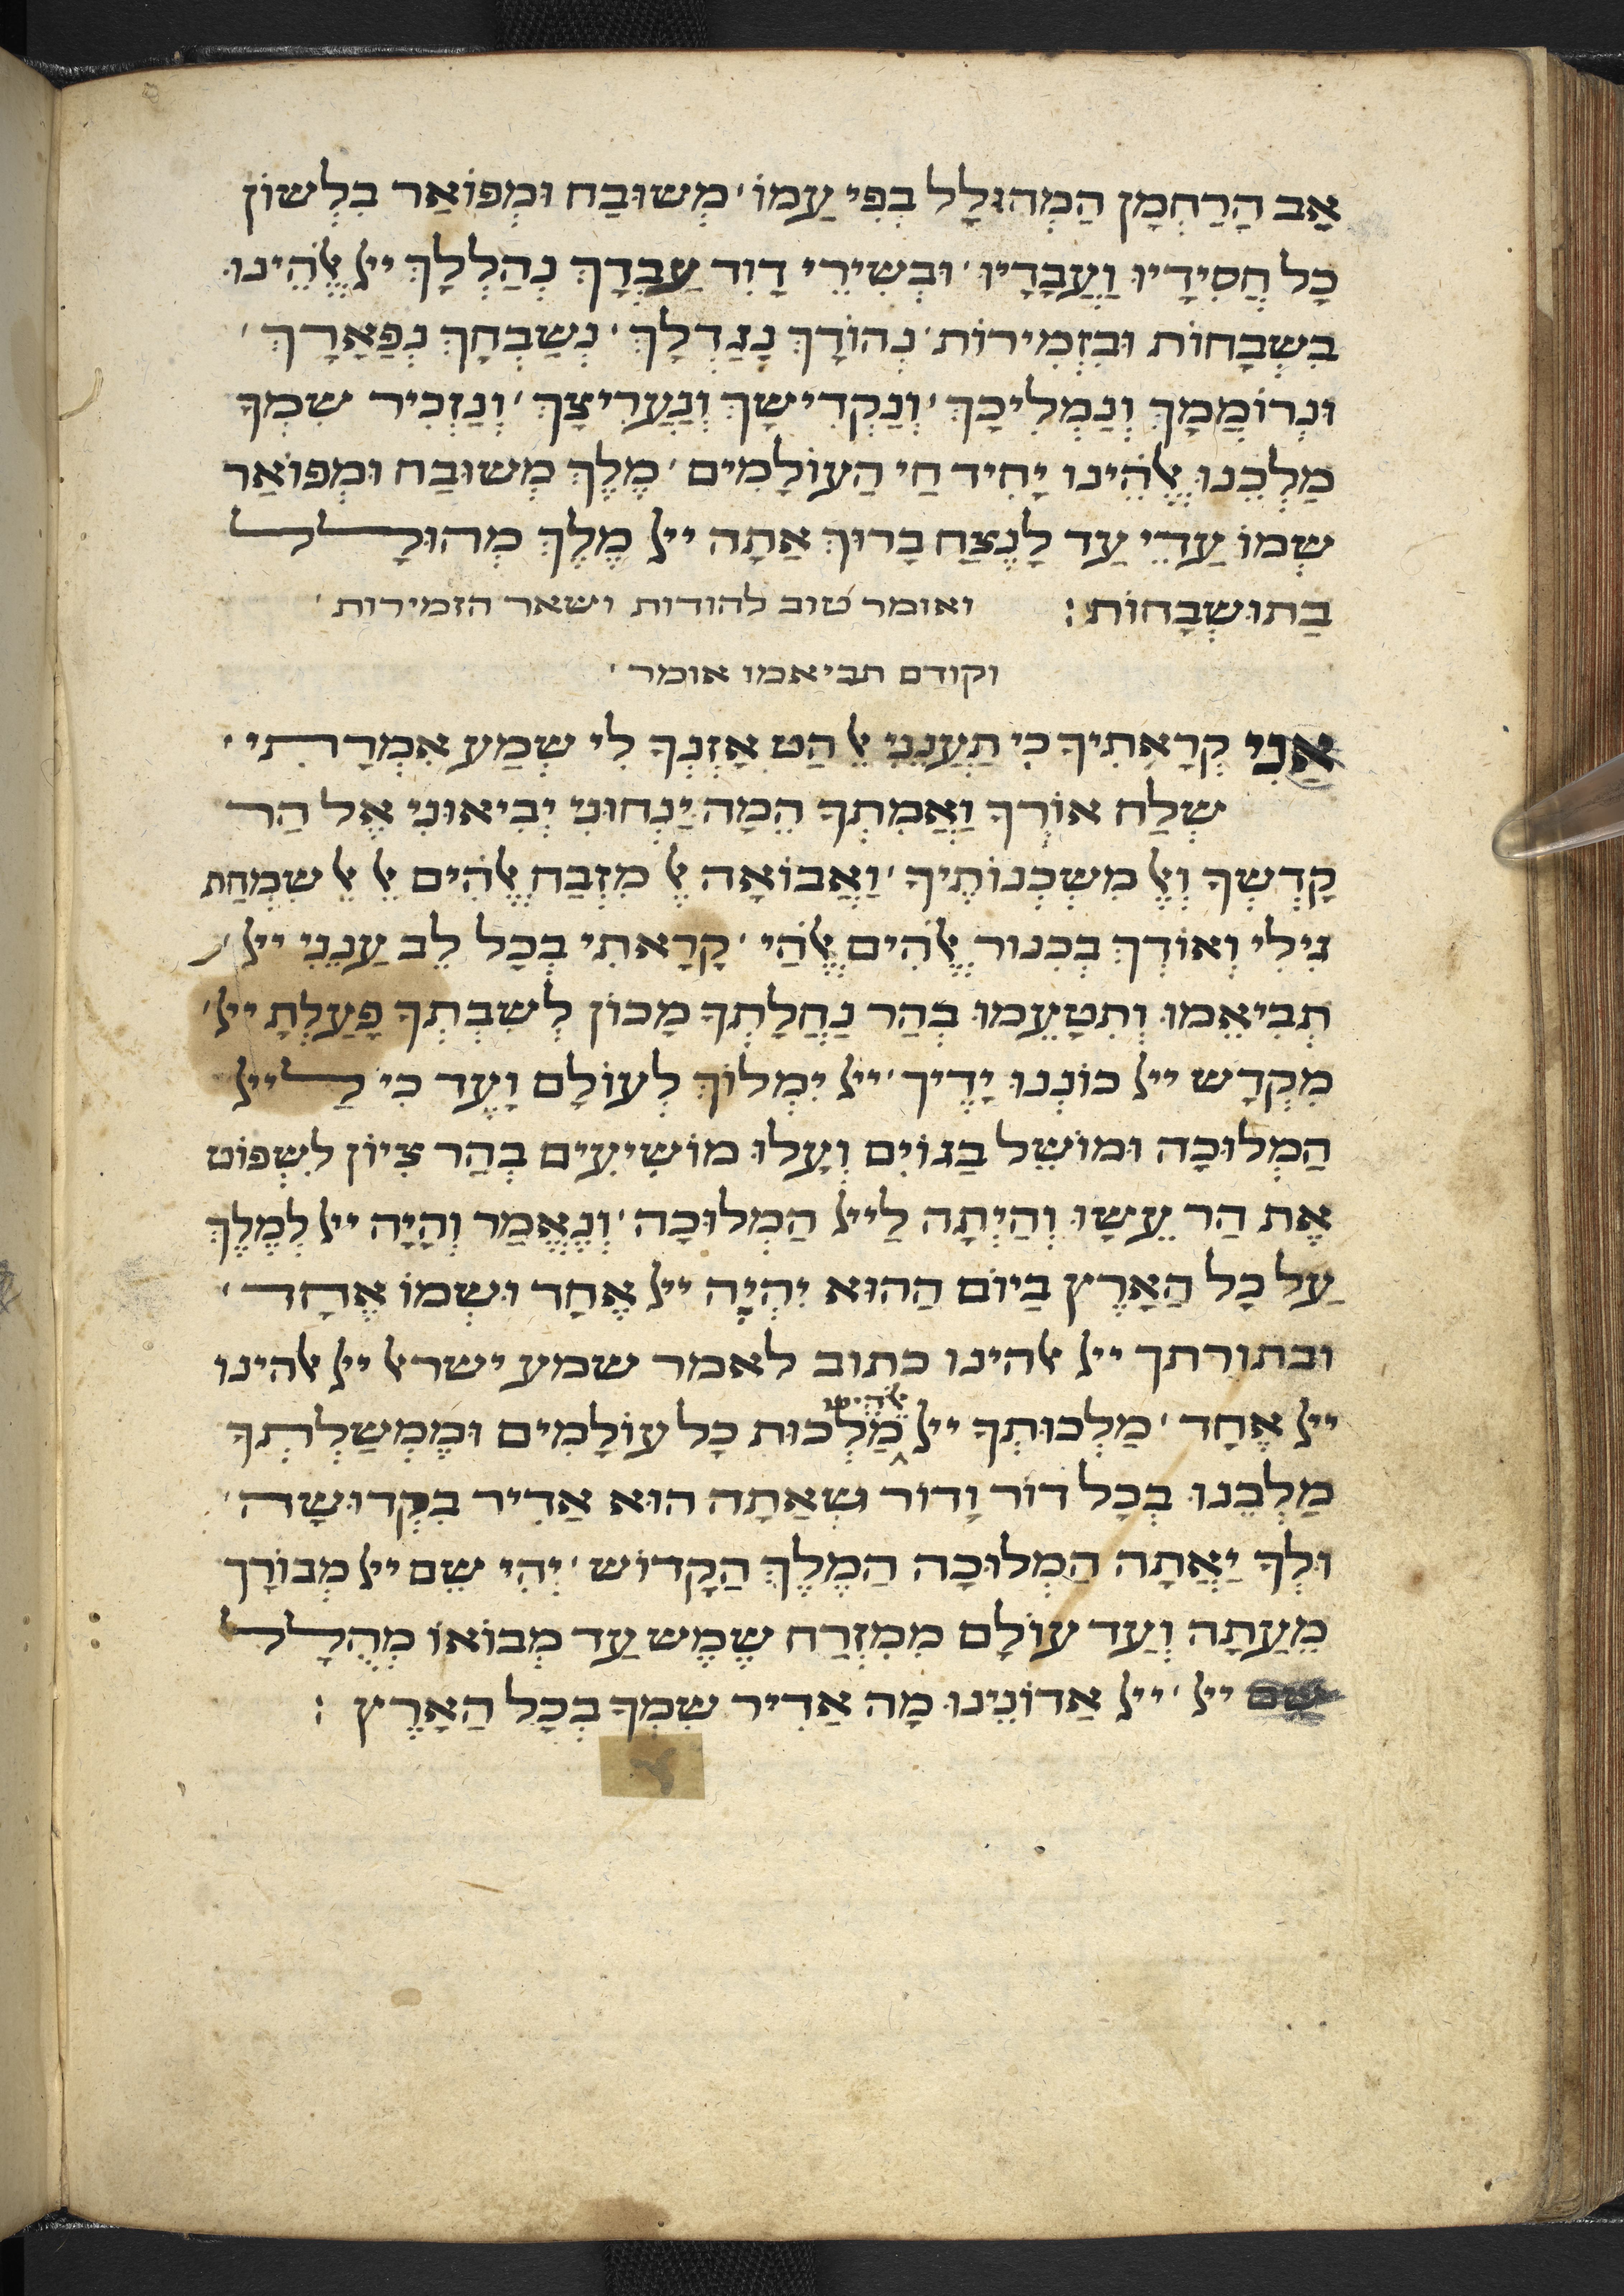 אָב הָרַחְמָן הַמְהוּלָל בְּפִי עַמוֹ׳ מְשׁוּבַּח וּמְפוֹאַר בִּלְשׁוֹן
כָּל חֲסִידָיו וַעֲבָדָיו׳ וּבְשִׁירֵי דָוִד עַבְדָךְ נְהַלְלָךְ ייל אֱלֹהֵינוּ
בִּשְׁבָחוֹת וּבִזְמִירוֹת׳ נְהוֹדָךְ נְגַדְלָךְ׳ נְשַׁבְּחָךְ נְפַאֲרָךְ׳
וּנְרוֹמְמָךְ וְנַמְלִיכָךְ׳ וְנַקְדִישָׁךְ וְנַעֲרִיצָךְ׳ וְנַזְכִּיר שִׁמְךָ
מַלְכֵּנוּ אֱלֹהֵינוּ יָחִיד חַי הָעוֹלָמִים׳ מֶלֶךְ מְשׁוּבַּח וּמְפוֹאַר
שְׁמוֹ עֲדֵי עַד לָנֶצַח בָּרוּךְ אַתָּה ייל מֶלֶךְ מְהוּלָל
בַּתּוּשְׁבָּחוֹת: ואומר טוב להודות ושאר הזמירות׳
וקודם תביאמו אומר׳
אֲנִי קְרָאתִיךָ כִי תַעֲנֵנִי אֵל הַט אָזְנְךָ לִי שְׁמַע אִמְרָתִי׳
שְׁלַח אוֹרְךָ וַאֲמִתְּךָ הֵמָּה יַנְחוּנִי יְבִיאוּנִי אֶל הַר
קָדְשְׁךָ וְאֶל מִשְׁכְּנוֹתֶיךָ׳ וְאָבוֹאָה אֶל מִזְבַּח אֱלֹהִים אֶל אֵל שִׂמְחַת
גִּילִי וְאוֹדְךָ בְּכִנּוֹר אֱלֹהִים אֱלֹהָי׳ קָרָאתִי בְכָל לֵב עֲנֵנִי ייל׳
תְּבִיאֵמוֹ וְתִטָּעֵמוֹ בְּהַר נַחֲלָתְךָ מָכוֹן לְשִׁבְתְּךָ פָּעַלְתָּ ייל׳
מִקְּדָשׁ ייל כּוֹנְנוּ יָדֶיךָ׳ ייל יִמְלוֹךְ לְעוֹלָם וָעֶד כִּי לַייל
הַמְּלוּכָה וּמוֹשֵׁל בַּגּוֹיִם וְעָלוּ מוֹשִׁיעִים בְּהַר צִיּוֹן לִשְׁפּוֹט
אֶת הַר עֵשָׂו וְהָיְתָה לַייל הַמְּלוּכָה׳ וְנֶאֱמַר וְהָיָה ייל לְמֶלֶךְ
עַל כָּל הָאָרֶץ בַּיּוֹם הַהוּא יִהְיֶה ייל אֶחָד וּשְׁמוֹ אֶחָד׳
ובתורתך ייל אלהינו כתוב לאמר שמע ישראל ייל אלהינו
ייל אֶחָד׳ מַלְכוּתְךָ ייל אלהינו מַלְכוּת כָּל עוֹלָמִים וּמֶמְשַׁלְתְּךָ
מַלְכֵּנוּ בְּכָל דּוֹר וָדוֹר שֶׁאַתָּה הוּא אַדִּיר בִּקְדוּשָׁה׳
וּלְךָ יָאֲתָה הַמְּלוּכָה הַמֶּלֶךְ הַקָּדוֹשׁ׳ יְהִי שֵׁם ייל מְבוֹרָךְ
מֵעַתָּה וְעַד עוֹלָם מִמִּזְרַח שֶׁמֶשׁ עַד מְבוֹאוֹ מְהֻלָּל
שֵׁם ייל׳ ייל אֲדוֹנֵינוּ מָה אַדִּיר שִׁמְךָ בְּכָל הָאָרֶץ: